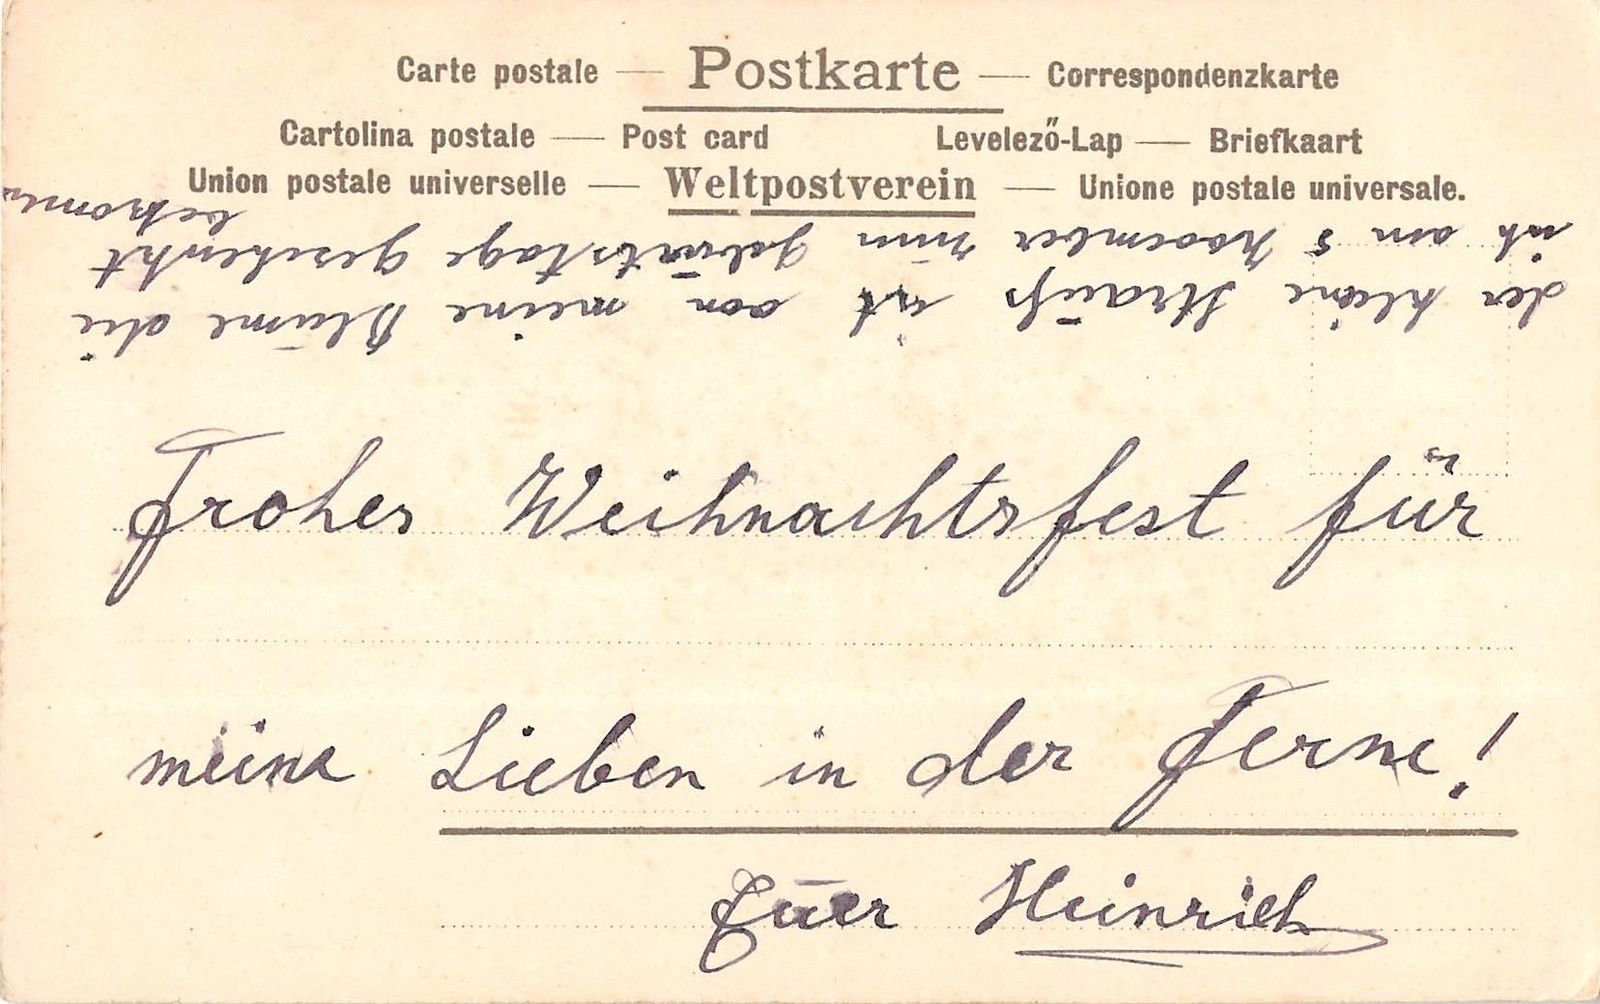 Carte postale — Postkarte — Correspondenzkarte
Cartolina postale — Post card Levelező-Lap — Briefkaart
Union postale universelle — Weltpostverein — Unione postale universale.
der kleine Strauß ist von meine Blume die
ich am 5 November zum Geburtstage geschenkt
bekommen
Frohes Weihnachtsfest für
meine Lieben in der Ferne!
Euer Heinrich